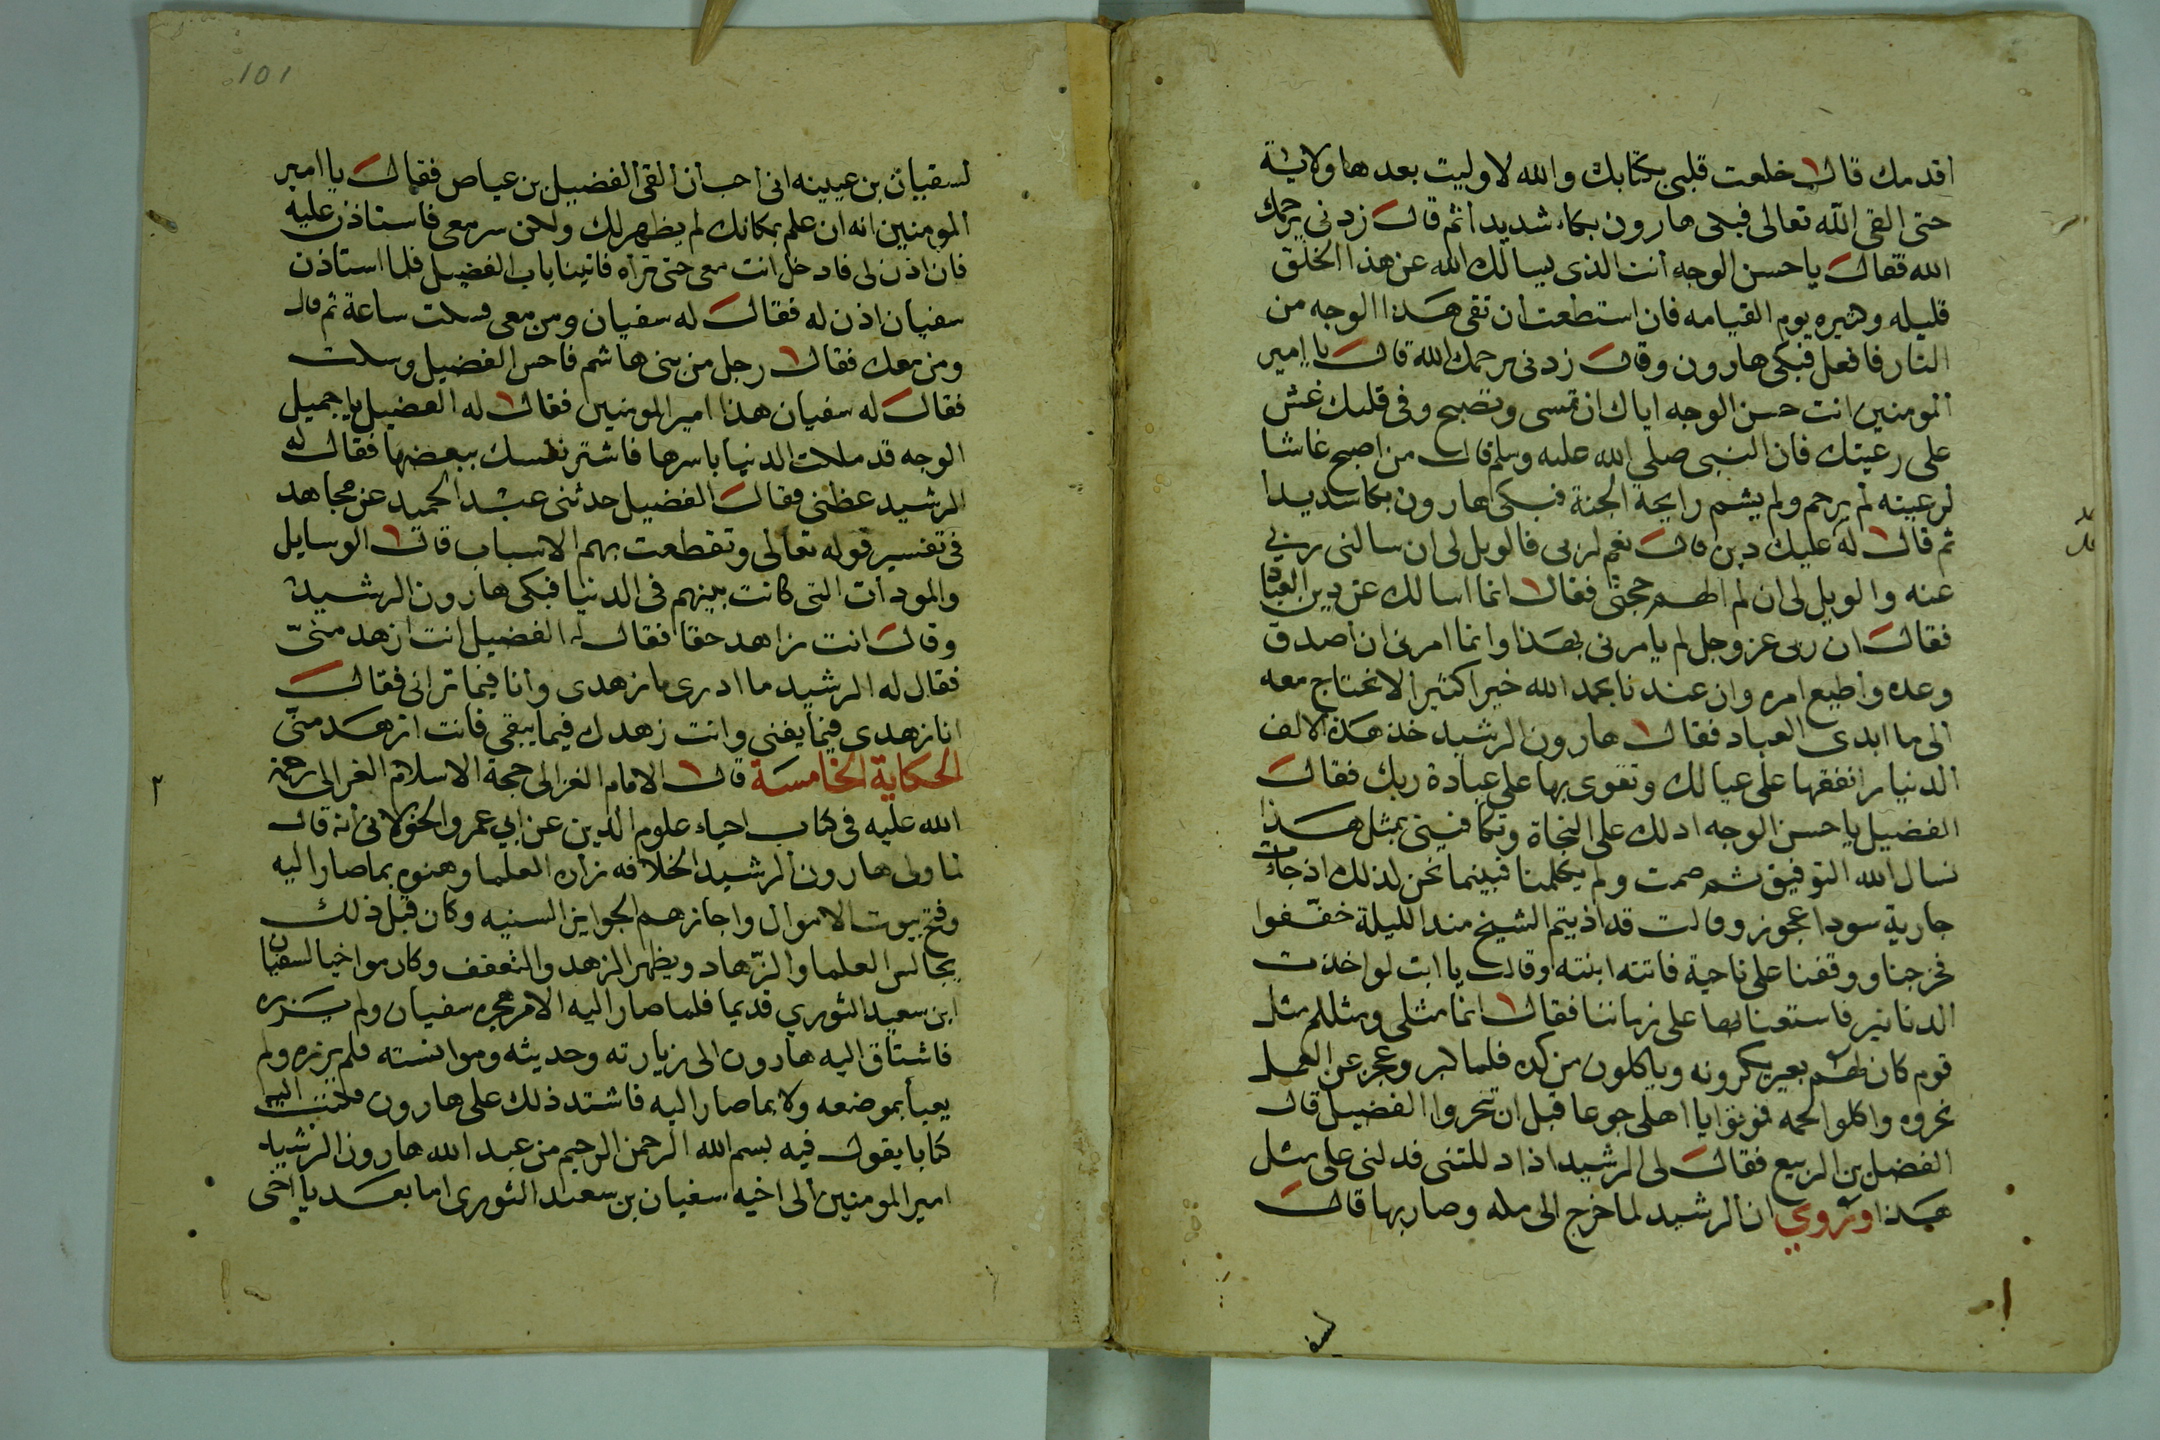 اقدمك قال خلعت قلبى بكتابك والله لا وليت بعدها ولاية
حتى القى الله تعالى فبكى هارون بكاء شديدا ثم قال زدنى يرحمك
الله فقال يا حسن الوجه أنت الذى يسالك الله عن هذا الخلق
قليله وكثيره يوم القيامه فان استطعت أن تقى هذا الوجه من
النار فافعل فبكى هارون وقال زدنى يرحمك الله قال يا امير
المومنين انت حسن الوجه اياك ان تمسى وتصبح وفى قلبك غش
على رعيتك فان النبى صلى الله عليه وسلم قال من اصبح غاشا
لرعيته لم يرحم ولم يشم رايحة الجنة فبكى هارون بكا شديدا
ثم قال له عليك دين قال نعم لربى فالويل لى ان سالنى ربي
عنه والويل لى ان لم الهم حجتى فقال انما اسالك عن دين العباد
فقال ان ربى عز وجل لم يامرنى بهذا وانما امرنى ان أصدق
وعده وأطيع امره وان عندنا بحمد الله خيرا كثيرا لا نحتاج معه
الى ما ابدى العباد فقال هارون الرشيد خذ هذه الالف
الدنيار انفقها على عيالك وتقوى بها على عبادة ربك فقال
الفضيل يا حسن الوجه ادلك على النجاة وتكافينى بمثل هذا
نسال الله التوفيق ثم صمت ولم يكلمنا فبينما نحن لذلك اذ جاءت
جارية سودا عجوز وقالت قد اذيتم الشيخ منذ الليلة خففوا
فخرجنا ووقفنا على ناحية فاتته ابنته وقالت يا ابت لو اخذت
الدنانير فاستعنا بها على زماننا فقال انما مثلى ومثلكم مثل
قوم كان لهم بعير يكرونه وياكلون من كده فلما كبر وعجز عن العمل
نحروه واكلوا لحمه فوتوا يا اهلى جوعا قبل ان تنحروا الفضيل قال
الفضل بن الربيع فقال لى الرشيد اذا دللتنى فدلنى على مثل
هذا وروي ان الرشيد لما خرج الى مكه وصار بها قال
لسفيان بن عيينه انى احب أن ألقى الفضيل بن عياص فقال يا امير
المومنين انه ان علم بمكانك لم يظهر لك ولكن سر معى فاستاذن عليه
فان اذن لى فادخل انت معى حتى تراه فاتينا باب الفضيل فلما استاذن
سفيان اذن له فقال له سفيان ومن معى فسكت ساعة ثم قال
ومن معك فقال رجل من بنى هاشم فاحس الفضيل وسكت
فقال له سفيان هذا امير المومنين فقال له الفضيل يا جميل
الوجه قد ملكت الدنيا باسرها فاشتر نفسك ببعضها فقال له
الرشيد عظنى فقال الفضيل حدثنى عبد الحميد عن مجاهد
فى تفسير قوله تعالى وتقطعت بهم الاسباب قال الوسايل
والمودات التى كانت بينهم فى الدنيا فبكى هارون الرشيد
وقال انت زاهد حقا فقال له الفضيل انت ازهد منىّ
فقال له الرشيد ما ادرى ما زهدى وأنا فيما ترانى فقال
انا زهدى فيما يفنى وانت زهدك فيما يبقى فانت ازهد منى
الحكاية الخامسة قال الامام الغزالى حجة الاسلام الغزالى رحمة
الله عليه فى كتاب احياء علوم الدين عن ابي عمرو الخولانى أنه قال
لما ولى هارون الرشيد الخلافه زاره العلما وهنوه بما صار اليه
وفتح بيوت الاموال واجازهم الجوايز السنيه وكان قبل ذلك
يجالس العلما والزّهاد ويظهر الزهد والتعفف وكان مواخيا لسفيان
ابن سعيد الثوري قديما فلما صار اليه الامر هجره سفيان ولم يزره
فاشتاق اليه هارون الى زيارته وحديثه وموانسته فلم يزره ولم
يعبأ بموضعه ولا بما صار اليه فاشتد ذلك على هارون فكتب اليه
كتابا يقول فيه بسم الله الرحمن الرحيم من عبد الله هارون الرشيد
امير المومنين الى اخيه سفيان بن سعيد الثورى اما بعد يا اخى